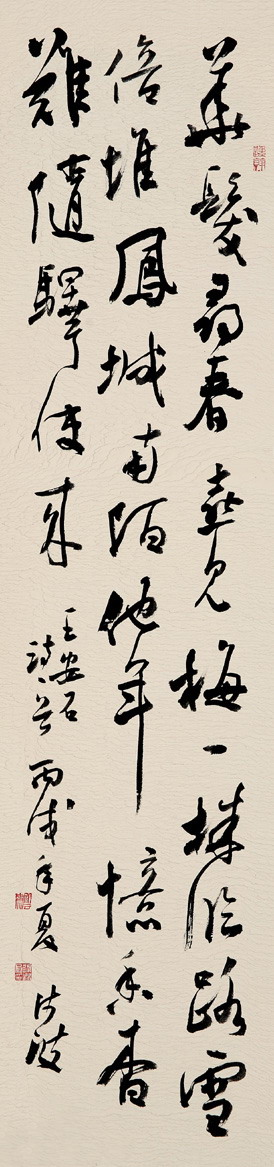 華髮尋春喜見梅一株臨路雪
倍堆鳳城南陌他年憶香杳
難隨驛使來 王安石詩 丙戌年夏